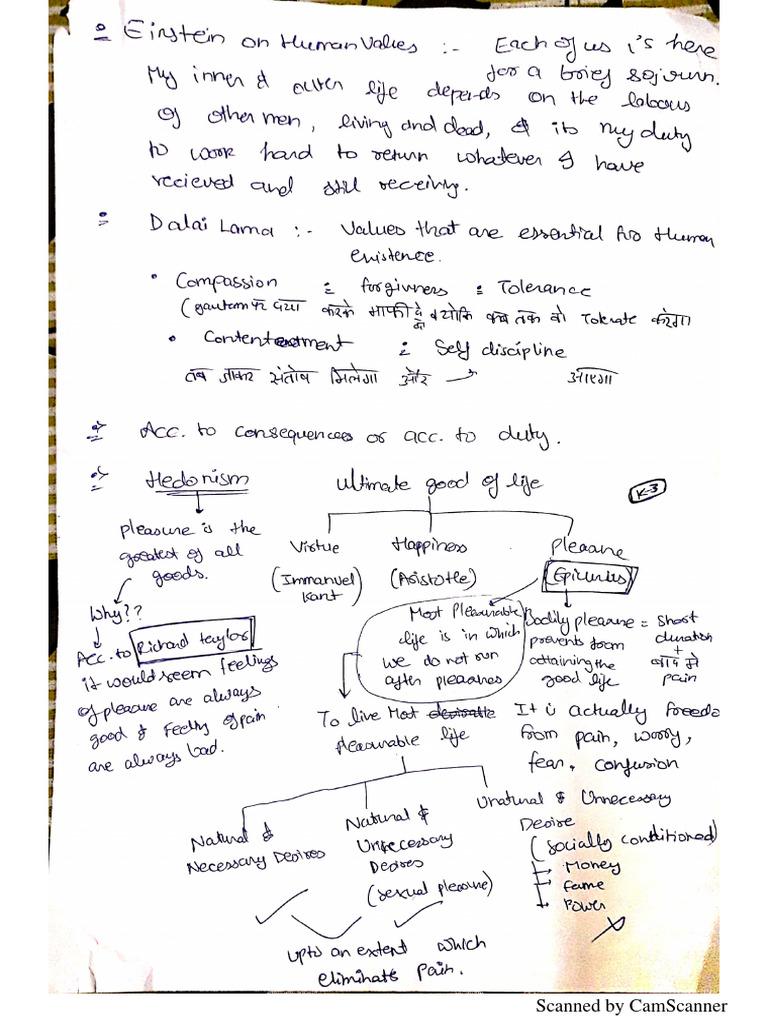 Einstein on Human Values :- Each of us is here
for a brief sojourn.
My inner & outer life depends on the labours
of other men, living and dead, & it is my duty
to work hard to return whatever I have
recieved and still receiving.
Dalai Lama :- Values that are essential for Human
existence.
• Compassion : forgivness : Tolerance
(gautam पर दया करके माफी दे दो क्योकि कब तक वो Tolerate करेगा
• Contentment : Self discipline
तब जाकर संतोष मिलेगा और → आएगा
Acc. to consequences or acc. to duty.
Hedonism
pleasure is the
greatest of all
goods.
Why??
Acc. to Richard Taylor
it would seem feelings
of pleasure are always
good & feeling of pain
are always bad.
Ultimate good of life
K-3
Virtue
(Immanuel
Kant)
Happiness
(Aristotle)
Pleasure
Epicurus
Most Pleasurable
life is in which
we do not run
after pleasures
Bodily pleasure = Short
prevents from duration
attaining the +
good life बाद मे
pain
To live Most desirable
pleasurable life
It is actually freedo
from pain, worry,
fear, confusion
Natural &
Necessary Desires
Natural &
Unnecessary
Desires
(sexual pleasure)
Unatural & Unnecessary
Desire
(socially conditioned)
Money
Fame
Power
upto an extent which
eliminate pain.
Scanned by CamScanner